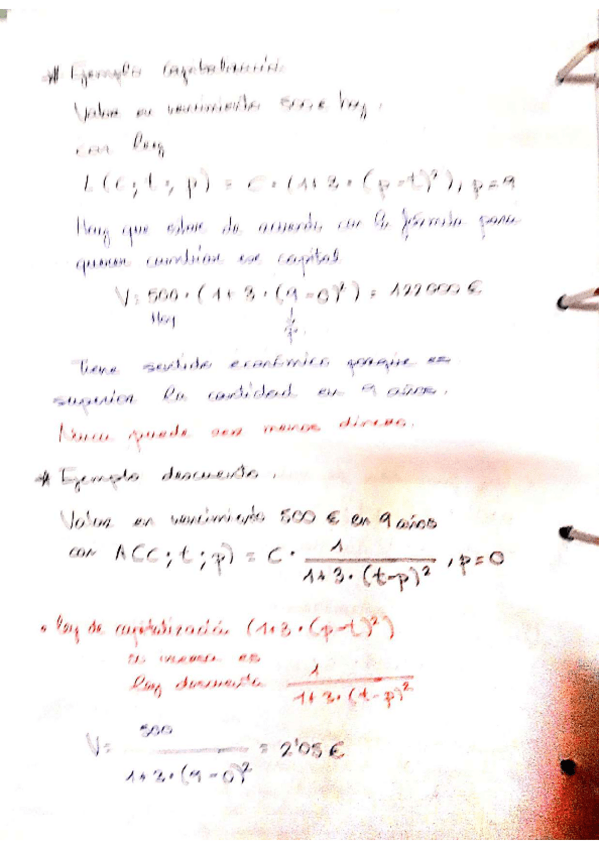 * Ejemplo capitalización
Valor en vencimiento 500 € hoy,
con ley
L(c; t; p) = C · (1+3 · (p-t)²), p=9
Hay que estar de acuerdo con la fórmula para
querer cuantificar ese capital
V= 500 · (1+3 · (9-0)²) = 122000 €
Hoy p.
Tiene sentido económico porque es
superior la cantidad en 9 años.
Nunca puede ser menos dinero.
* Ejemplo descuento.
Valor en vencimiento 500 € en 9 años
con A(C; t; p) = C · 1 / 1+3·(t-p)² , p=0
• ley de capitalización (1+3·(p-t)²)
su inversa es
ley descuento 1 / 1+3·(t-p)²
V= 500 / 1+3·(9-0)² = 2'05 €